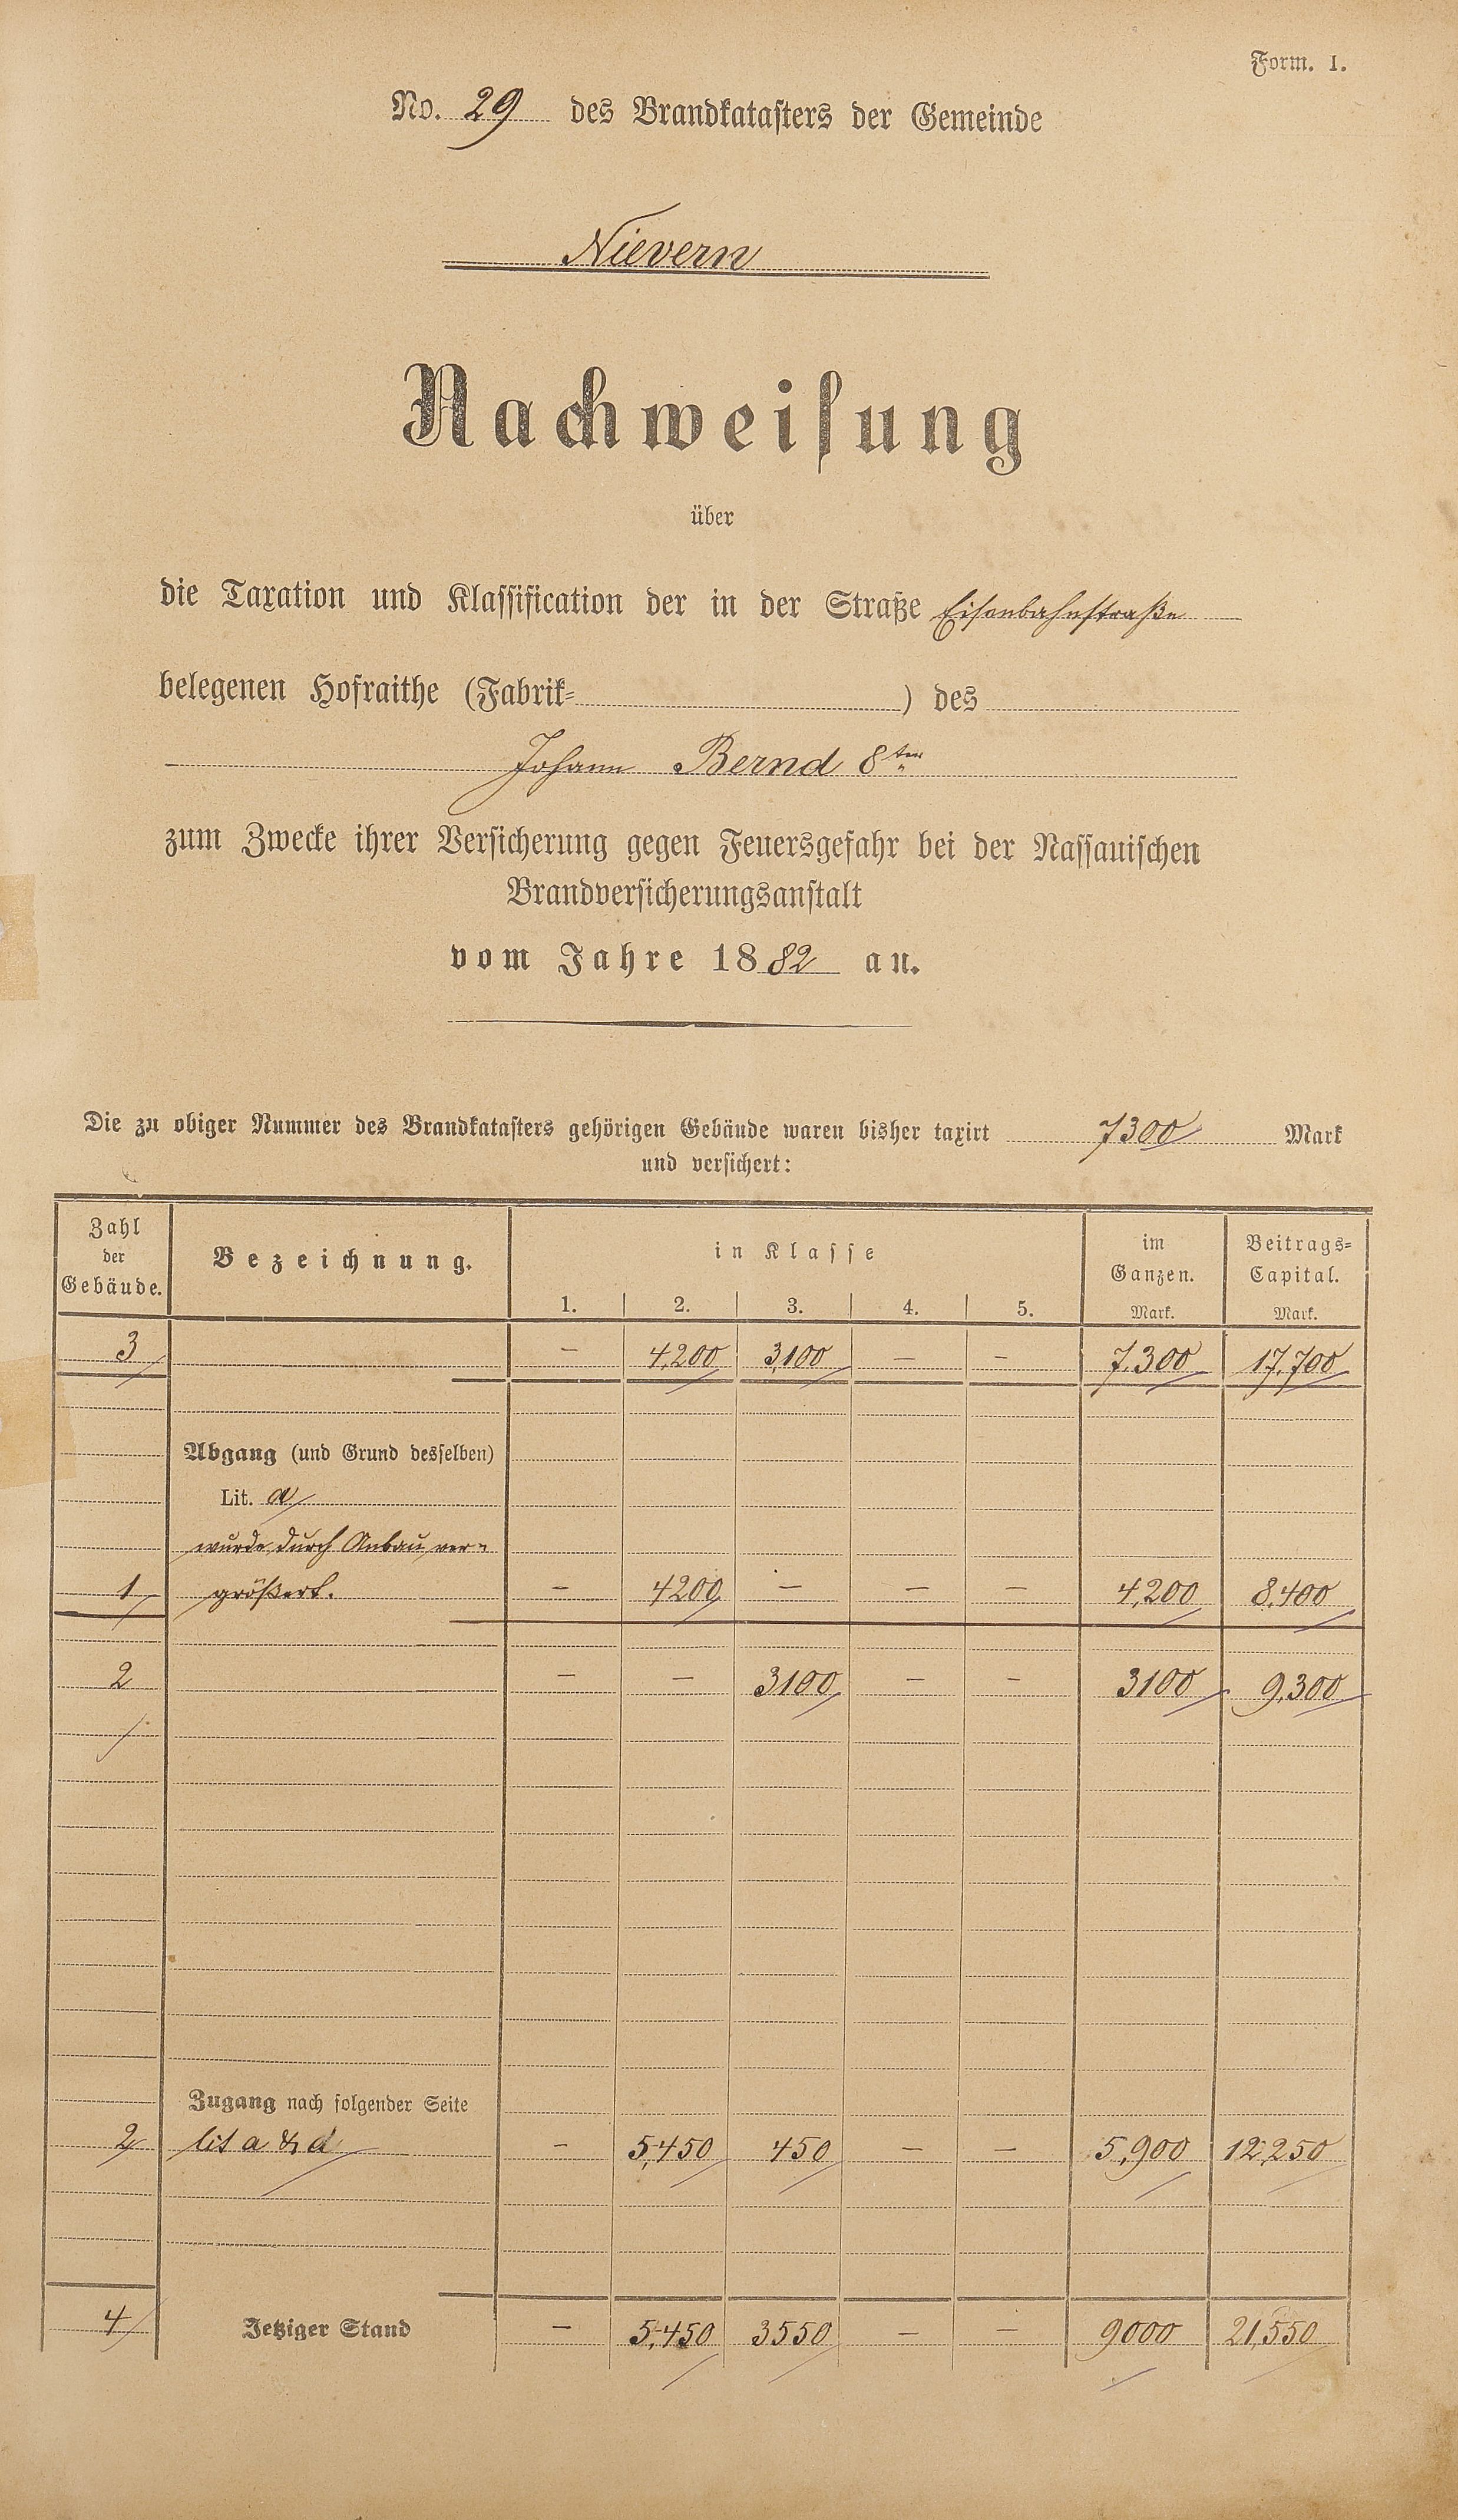 Form. I.
No. 29 des Brandkatasters der Gemeinde
Nievern
Nachweisung
über
die Taxation und Klassification der in der Straße Eisenbahnstraße
belegenen Hofraithe (Fabrik- ) des
Johann Bernd 8ten
zum Zwecke ihrer Versicherung gegen Feuersgefahr bei der Nassauischen
Brandversicherungsanstalt
vom Jahre 1882 an.
Die zu obiger Nummer des Brandkatasters gehörigen Gebäude waren bisher taxirt 7300 Mark
und versichert:
Zahl der Gebäude. Bezeichnung. in Klasse im Ganzen. Beitrags-Capital.
1. 2. 3. 4. 5. Mark. Mark.
3 — 4,200 3,100 — — 7,300 17,700
Abgang (und Grund desselben)
Lit. a
wurde durch Anbau ver-
1 größert. — 4200 — — — 4,200 8,400
2 — — 3100 — — 3100 9,300
Zugang nach folgender Seite
2 lit a & d — 5,450 450 — — 5,900 12,250
4 Jetziger Stand — 5,450 3550 — — 9000 21,550